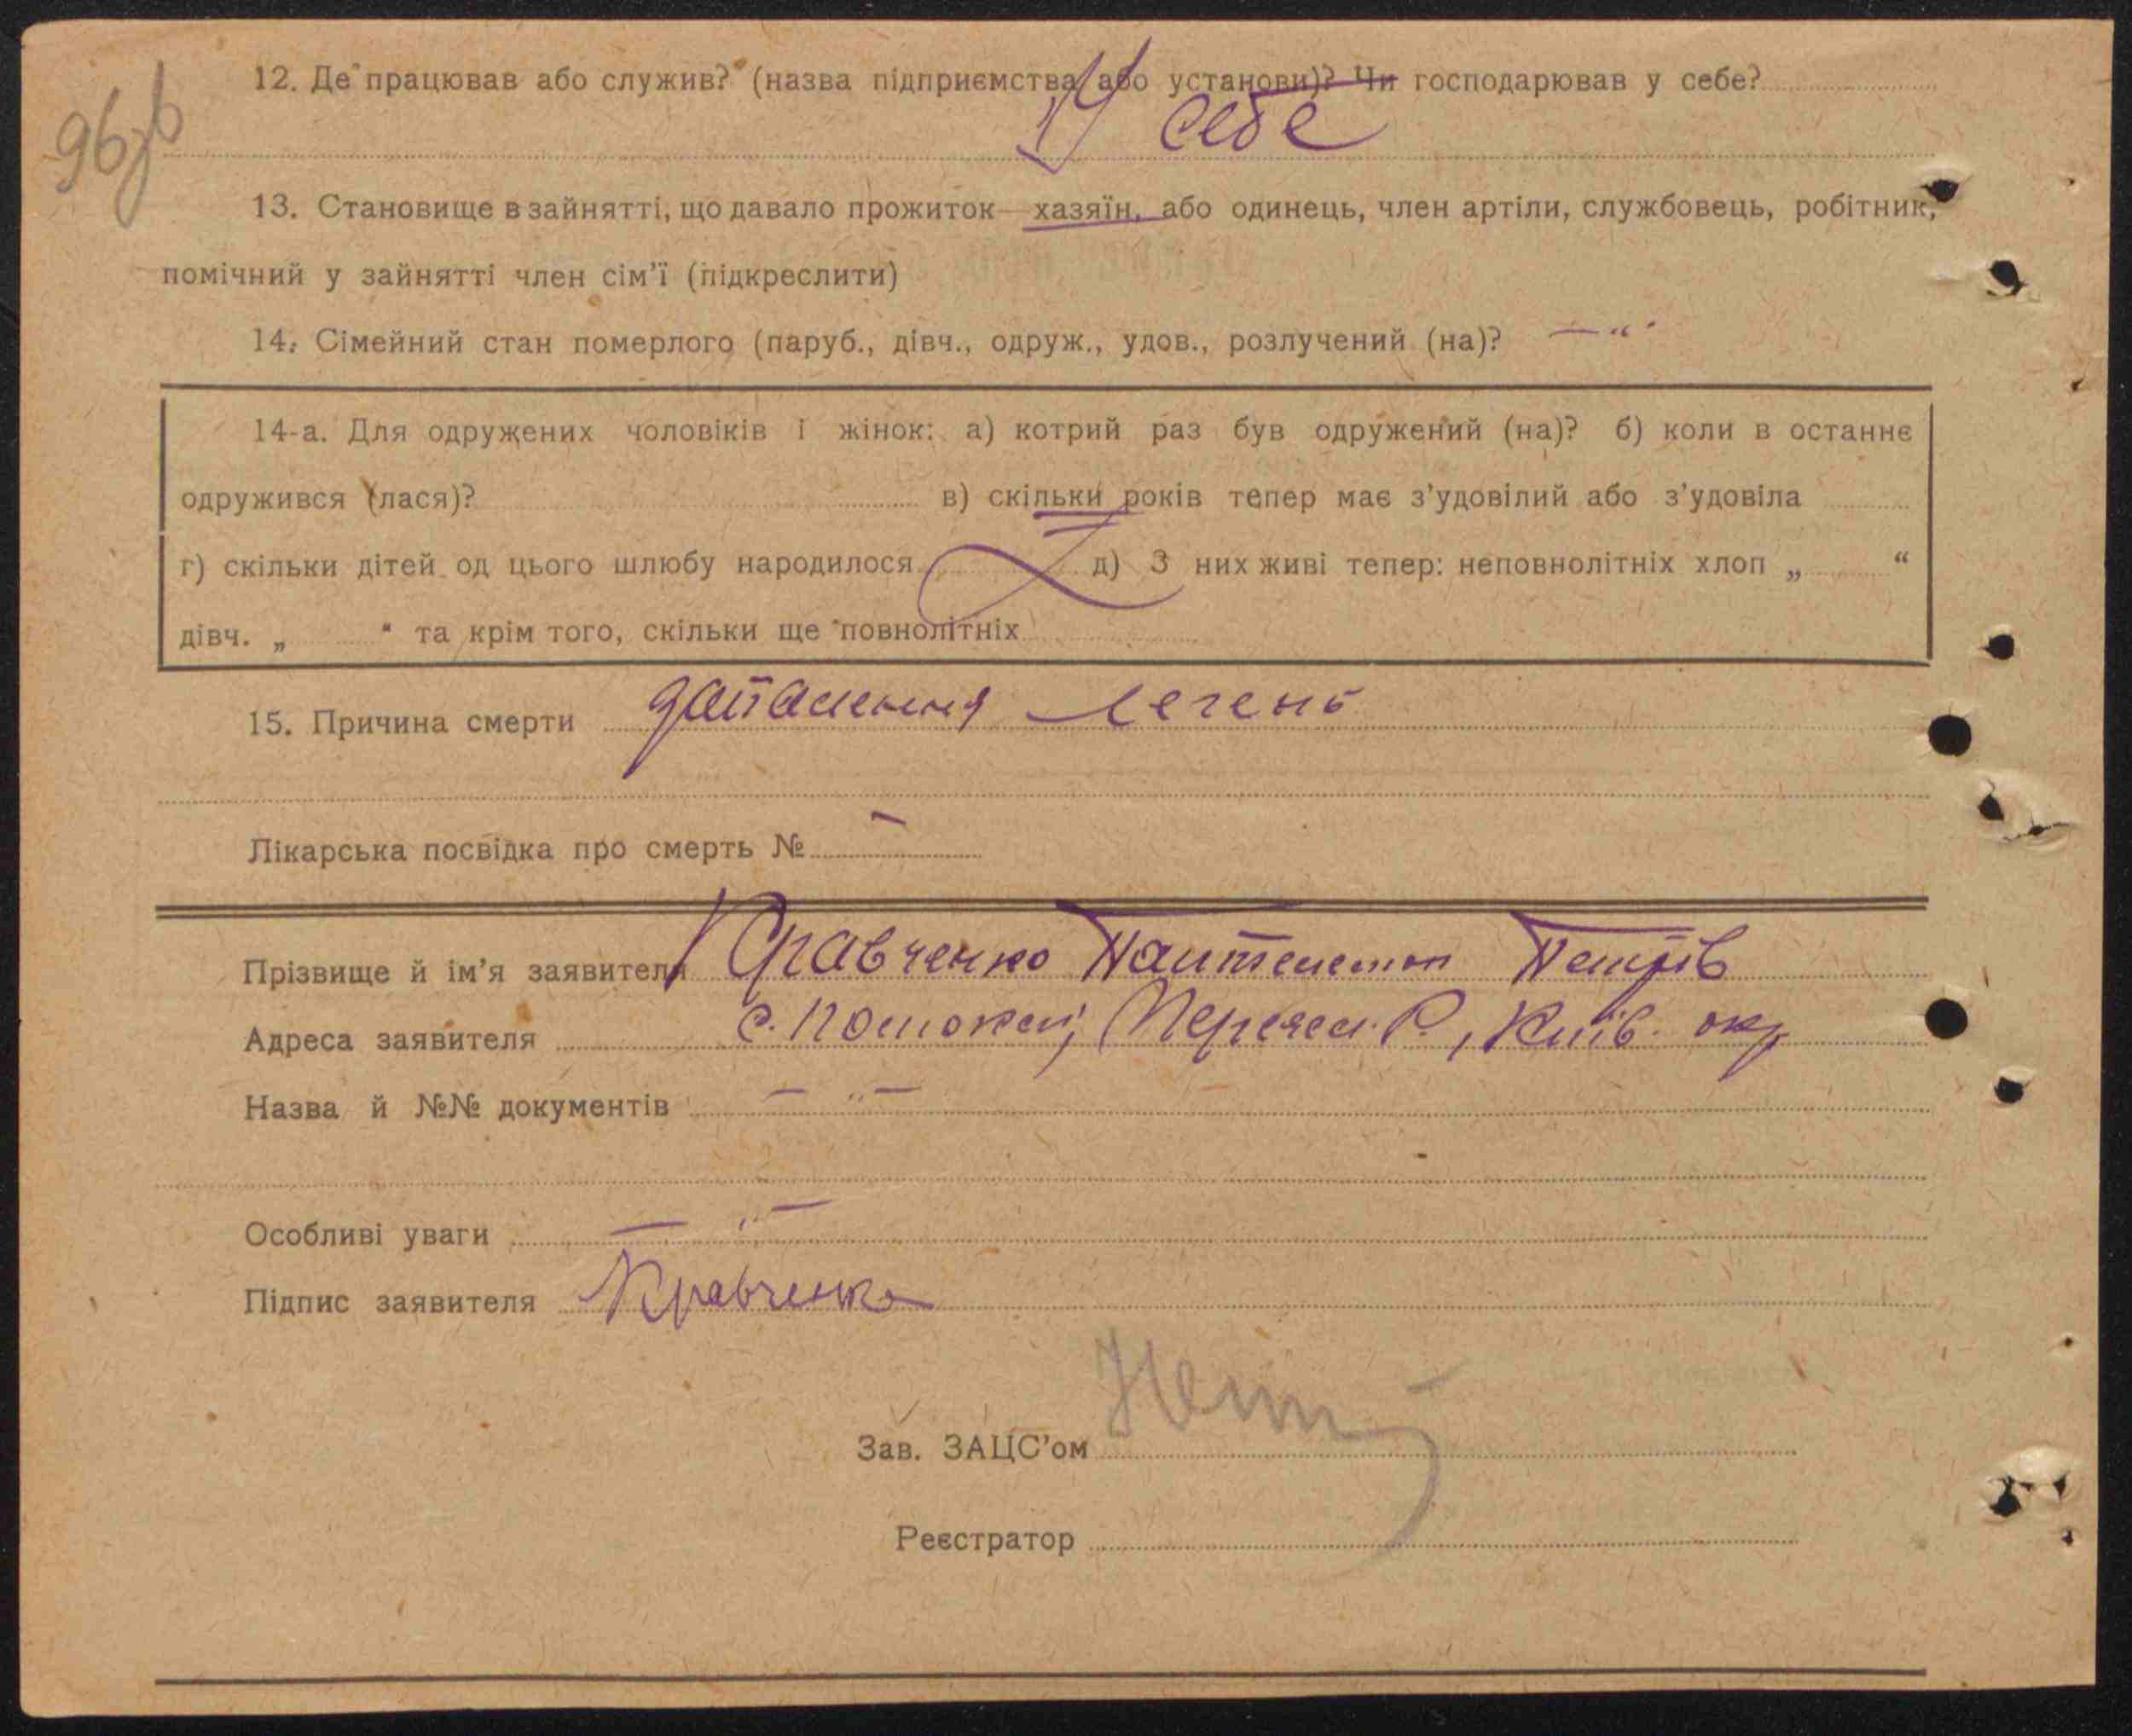 96зв
12. Де працював або служив? (назва підприємства або установи)? Чи господарював у себе?
У себе
13. Становище в зайнятті, що давало прожиток—хазяїн, або одинець, член артіли, службовець, робітник,
помічний у зайнятті член сім’ї (підкреслити)
14. Сімейний стан померлого (паруб., дівч., одруж., удов., розлучений (на)? — " -
14-а. Для одружених чоловіків і жінок: а) котрий раз був одружений (на)? б) коли в останнє
одружився (лася)? в) скільки років тепер має з’удовілий або з’удовіла
г) скільки дітей од цього шлюбу народилося д) З них живі тепер: неповнолітніх хлоп „ “
дівч. „ “ та крім того, скільки ще повнолітніх
15. Причина смерти запалення легень
Лікарська посвідка про смерть № —
Прізвище й ім’я заявителя Кравченко Пантелемон Петрів
Адреса заявителя с. Потоки, Переясл. Р., Київ. окр
Назва й №№ документів — " —
Особливі уваги — " —
Підпис заявителя Кравченко
Зав. ЗАЦС’ом
Реєстратор